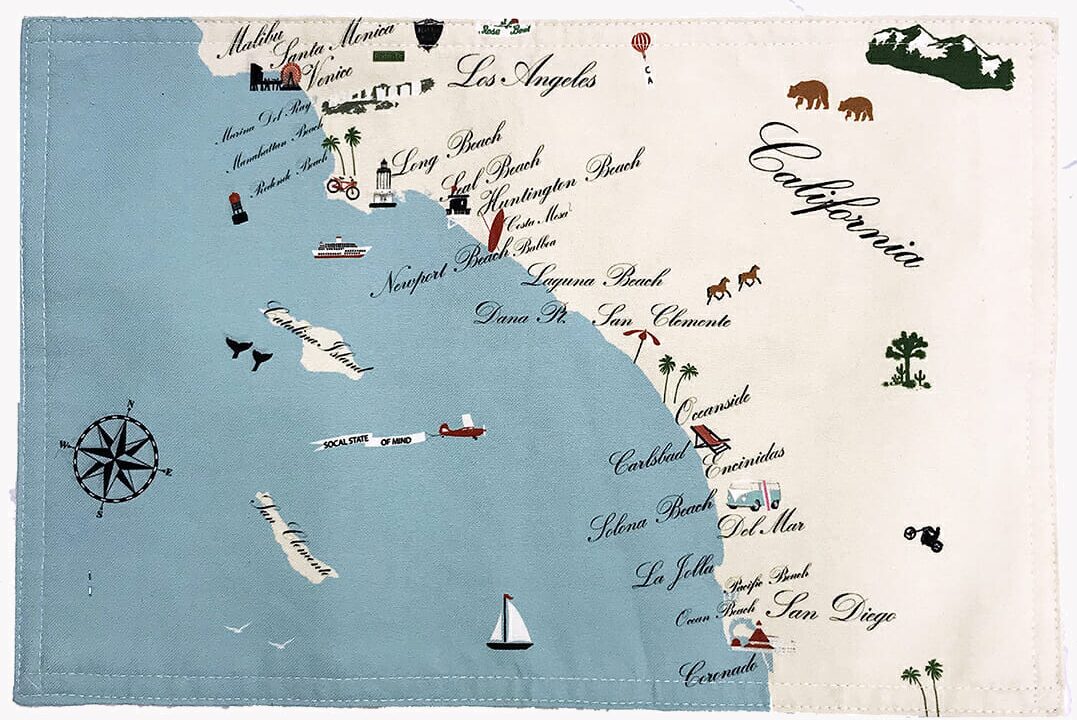 Malibu
Santa Monica
Venice
Rose Bowl
Los Angeles
C
A
Marina Del Ray
Manahattan Beach
Redondo Beach
Long Beach
Seal Beach
Huntington Beach
Costa Mesa
Balboa
Newport Beach
Laguna Beach
Dana Pt.
San Clemente
California
Catalina Island
SOCAL STATE OF MIND
N
W
E
S
Oceanside
Carlsbad
Encinidas
San Clemente
Solona Beach
Del Mar
La Jolla
Pacific Beach
Ocean Beach
San Diego
Coronado